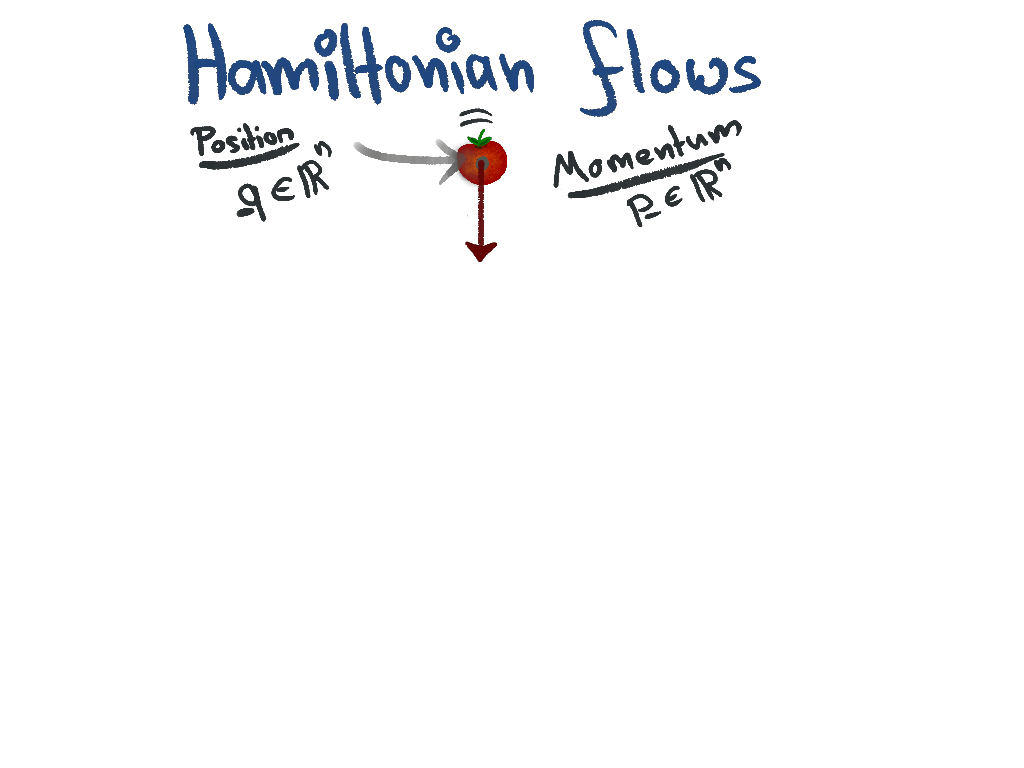 Hamiltonian flows
Position
q ∈ ℝⁿ
Momentum
p ∈ ℝⁿ